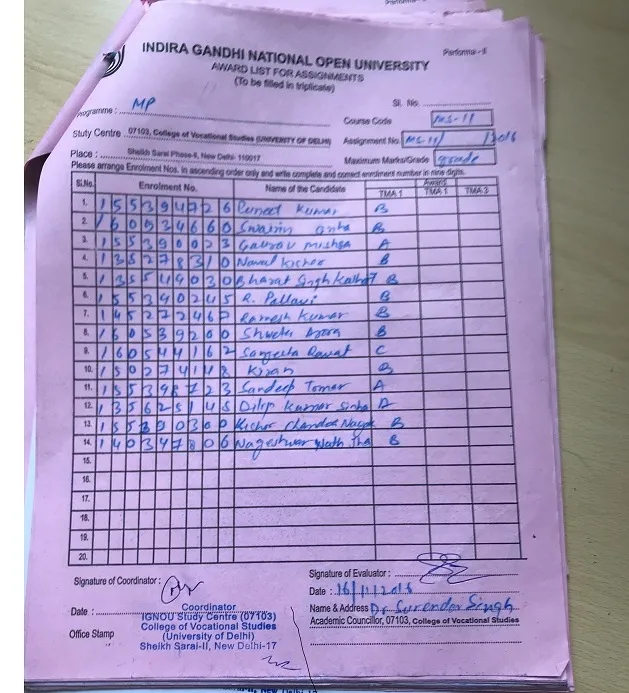 INDIRA GANDHI NATIONAL OPEN UNIVERSITY
Performa - II
AWARD LIST FOR ASSIGNMENTS
(To be filled in triplicate)
Sl. No.
Programme : MP
Course Code MS-11
Stuty Centre : 07103, College of Vocational Studies (UNIVERSITY OF DELHI)
Assignment No. MS-11/ /2016
Place : Sheikh Sarai Phase-II, New Delhi- 110017
Maximum Marks/Grade grade
Please arrange Enrolment Nos. in ascending order only and write complete and correct enrolment number in nine digits.
Sl.No. Enrolment No. Name of the Candidate Awards
TMA 1 TMA 1 TMA 3
1. 155394726 Puneet Kumar B
2. 160934660 Swairin B
3. 155390023 Gaurav Mishra A
4. 135278310 Nawal Kishor B
5. 135549030 Bharat Singh B
6. 155340245 R. Pallavi B
7. 145272467 Ramesh Kumar B
8. 160539200 Shweta Arora B
9. 160544162 Sangeeta Rawat C
10. Kiran B
11. 155398723 Sandeep Tomar A
12. 135625145 Dilip Kumar Sinha A
13. Kishor Chandra B
14. 140347806 Nageshwar Nath Jha B
15.
16.
17.
18.
19.
20.
Signature of Coordinator :
Signature of Evaluator :
Date : 16/11/2016
Date :
Coordinator
Name & Address Dr Surender Singh
IGNOU Study Centre (07103)
Academic Councillor, 07103, College of Vocational Studies
Office Stamp
College of Vocational Studies
(University of Delhi)
Sheikh Sarai-II, New Delhi-17